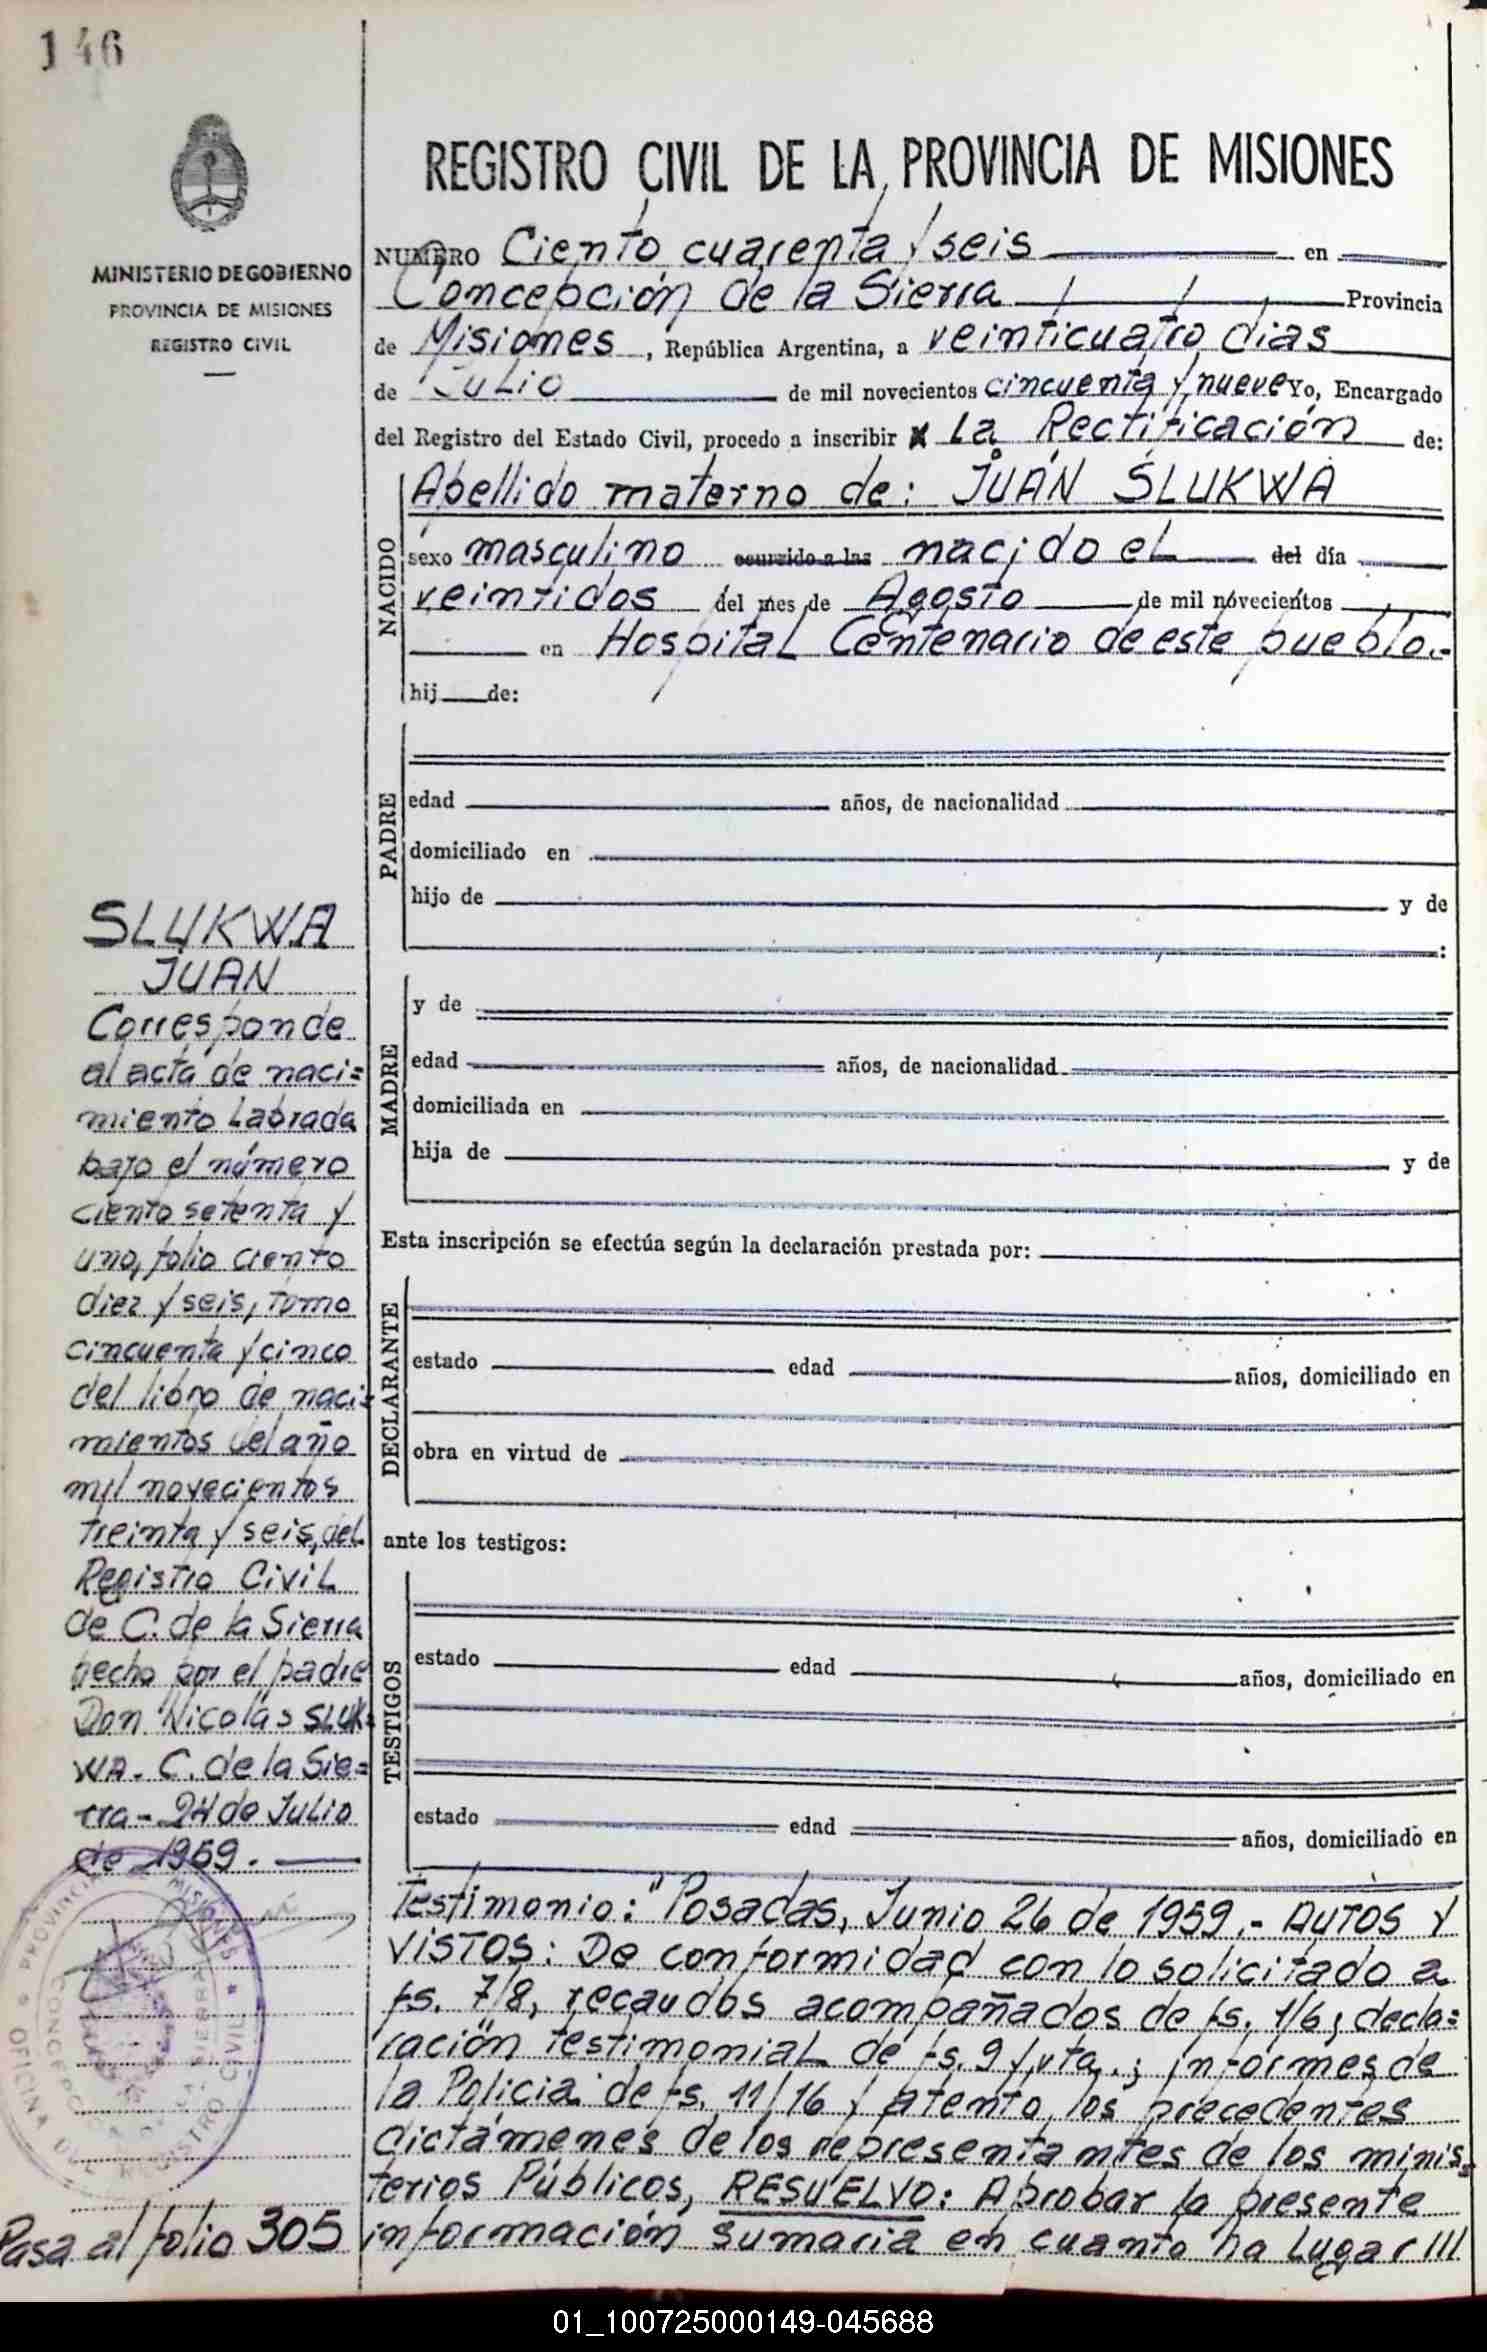 146
MINISTERIO DE GOBIERNO
PROVINCIA DE MISIONES
REGISTRO CIVIL
REGISTRO CIVIL DE LA PROVINCIA DE MISIONES
NUMERO Ciento cuarenta y seis en
Concepción de la Sierra Provincia
de Misiones, República Argentina, a veinticuatro dias
de Julio de mil novecientos cincuenta y nueve Yo, Encargado
del Registro del Estado Civil, procedo a inscribir la Rectificación de:
NACIDO
Apellido materno de: JUAN SLUKWA
sexo masculino ocurrido a las nacido el del día
veintidos del mes de Agosto de mil novecientos
en Hospital Centenario de este pueblo.-
hij de:
PADRE
edad años, de nacionalidad
domiciliado en
hijo de y de
:
MADRE
y de
edad años, de nacionalidad
domiciliada en
hija de y de
Esta inscripción se efectúa según la declaración prestada por:
DECLARANTE
estado edad años, domiciliado en
obra en virtud de
ante los testigos:
TESTIGOS
estado edad años, domiciliado en
estado edad años, domiciliado en
Testimonio: "Posadas, Junio 26 de 1959.- AUTOS Y
VISTOS: De conformidad con lo solicitado a
fs. 7/8, recaudos acompañados de fs. 1/6; decla=
ración testimonial de fs. 9 y vta.; informes de
la Policia de fs. 11/16 y atento los precedentes
dictámenes de los representantes de los minis=
terios Públicos, RESUELVO: Aprobar la presente
información sumaria en cuanto ha lugar ///
SLUKWA
JUAN
Corresponde
al acta de naci=
miento labrada
bajo el número
ciento setenta y
uno, folio ciento
diez y seis, tomo
cincuenta y cinco
del libro de naci=
mientos del año
mil novecientos
treinta y seis, del
Registro Civil
de C. de la Sierra
hecho por el padre
Don Nicolás SLUK=
WA.- C. de la Sie=
rra - 24 de Julio
de 1959.-
PROVINCIA DE MISIONES
OFICINA DEL REGISTRO CIVIL
CONCEPCION SIERRA
Pasa al folio 305
01_100725000149-045688